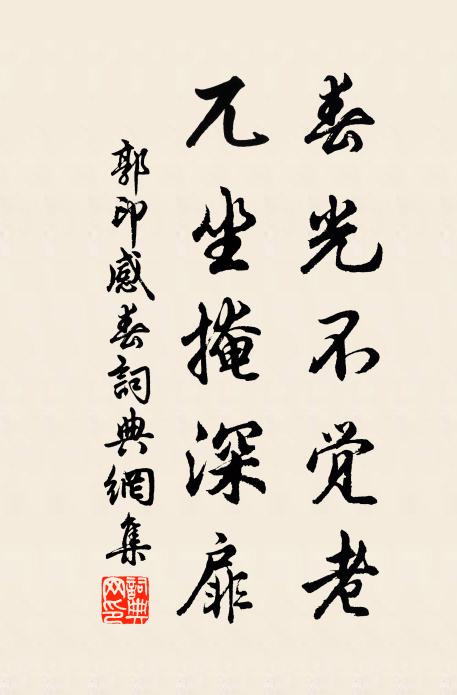 春光不觉老
兀坐掩深扉
郭印感春詞典網集
詞典网印